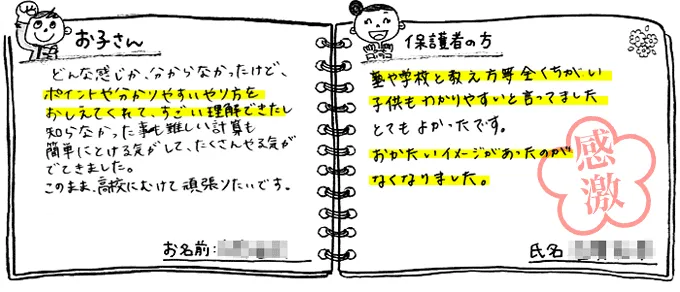 お子さん
どんな感じか、分からなかったけど、
ポイントや分かりやすいやり方を
おしえてくれて、すごい理解できたし
知らなかった事も難しい計算も
簡単にとける気がして、たくさんやる気が
でてきました。
このまま、高校にむけて頑張りたいです。
お名前:
保護者の方
塾や学校と教え方が全くちがい
子供もわかりやすいと言ってました
とてもよかったです。
おかたいイメージがあったのが
なくなりました。
感激
氏名